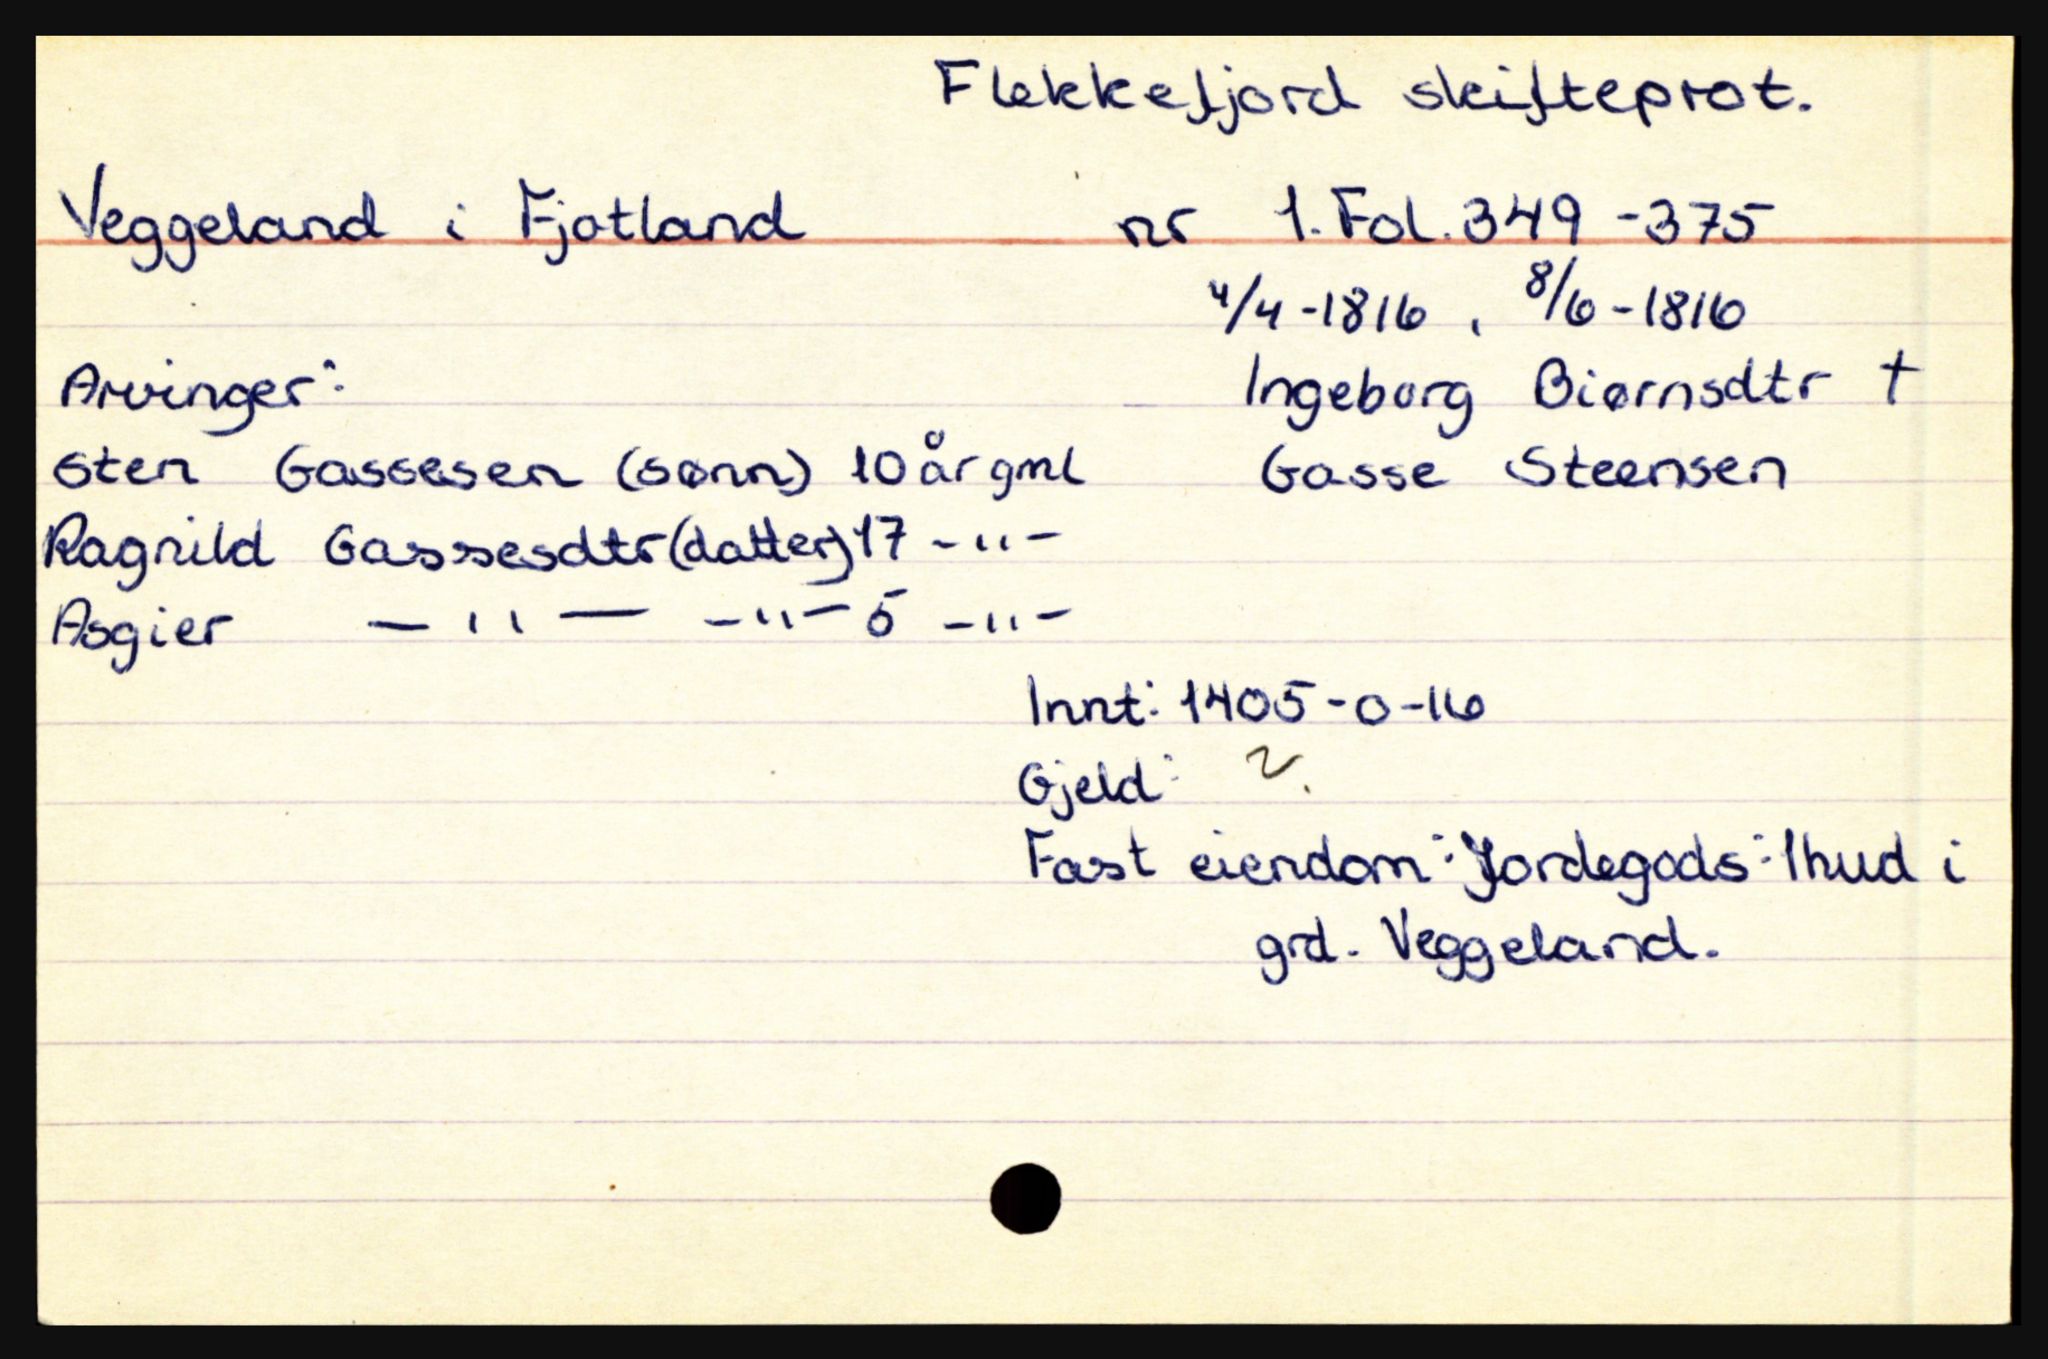 Flekkefjord skifteprot.
Veggeland i Fjotland nr 1. Fol. 349-375
4/4-1816, 8/6-1816
Arvinger: Ingeborg Biørnsdtr †
Sten Gassesen (sønn) 10 år gml Gasse Steensen
Ragnild Gassesdtr (datter) 17 -"-
Asgier -"- -"- 5 -"-
Innt: 1405-0-16
Gjeld:
Fast eiendom: Jordegods: 1 hud i
grd. Veggeland.